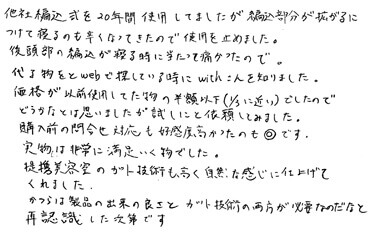 他社編込式を20年間使用してましたが編込部分が拡がるに
つけて寝るのも辛くなってきたので使用を止めました。
後頭部の編込が寝る時に当たって痛かったので。
代る物をとwebで探している時にwithこんを知りました。
価格が以前使用してた物の半額以下(1/3に近い)でしたので
どうかなとは思いましたが試しにと依頼してみました。
購入前の問合せ対応も好感度高かったのも◎です。
実物は非常に満足いく物でした。
提携美容室のカット技術も高く自然な感じに仕上げて
くれました。
かつらは製品の出来の良さとカット技術の両方が必要なのだなと
再認識した次第です